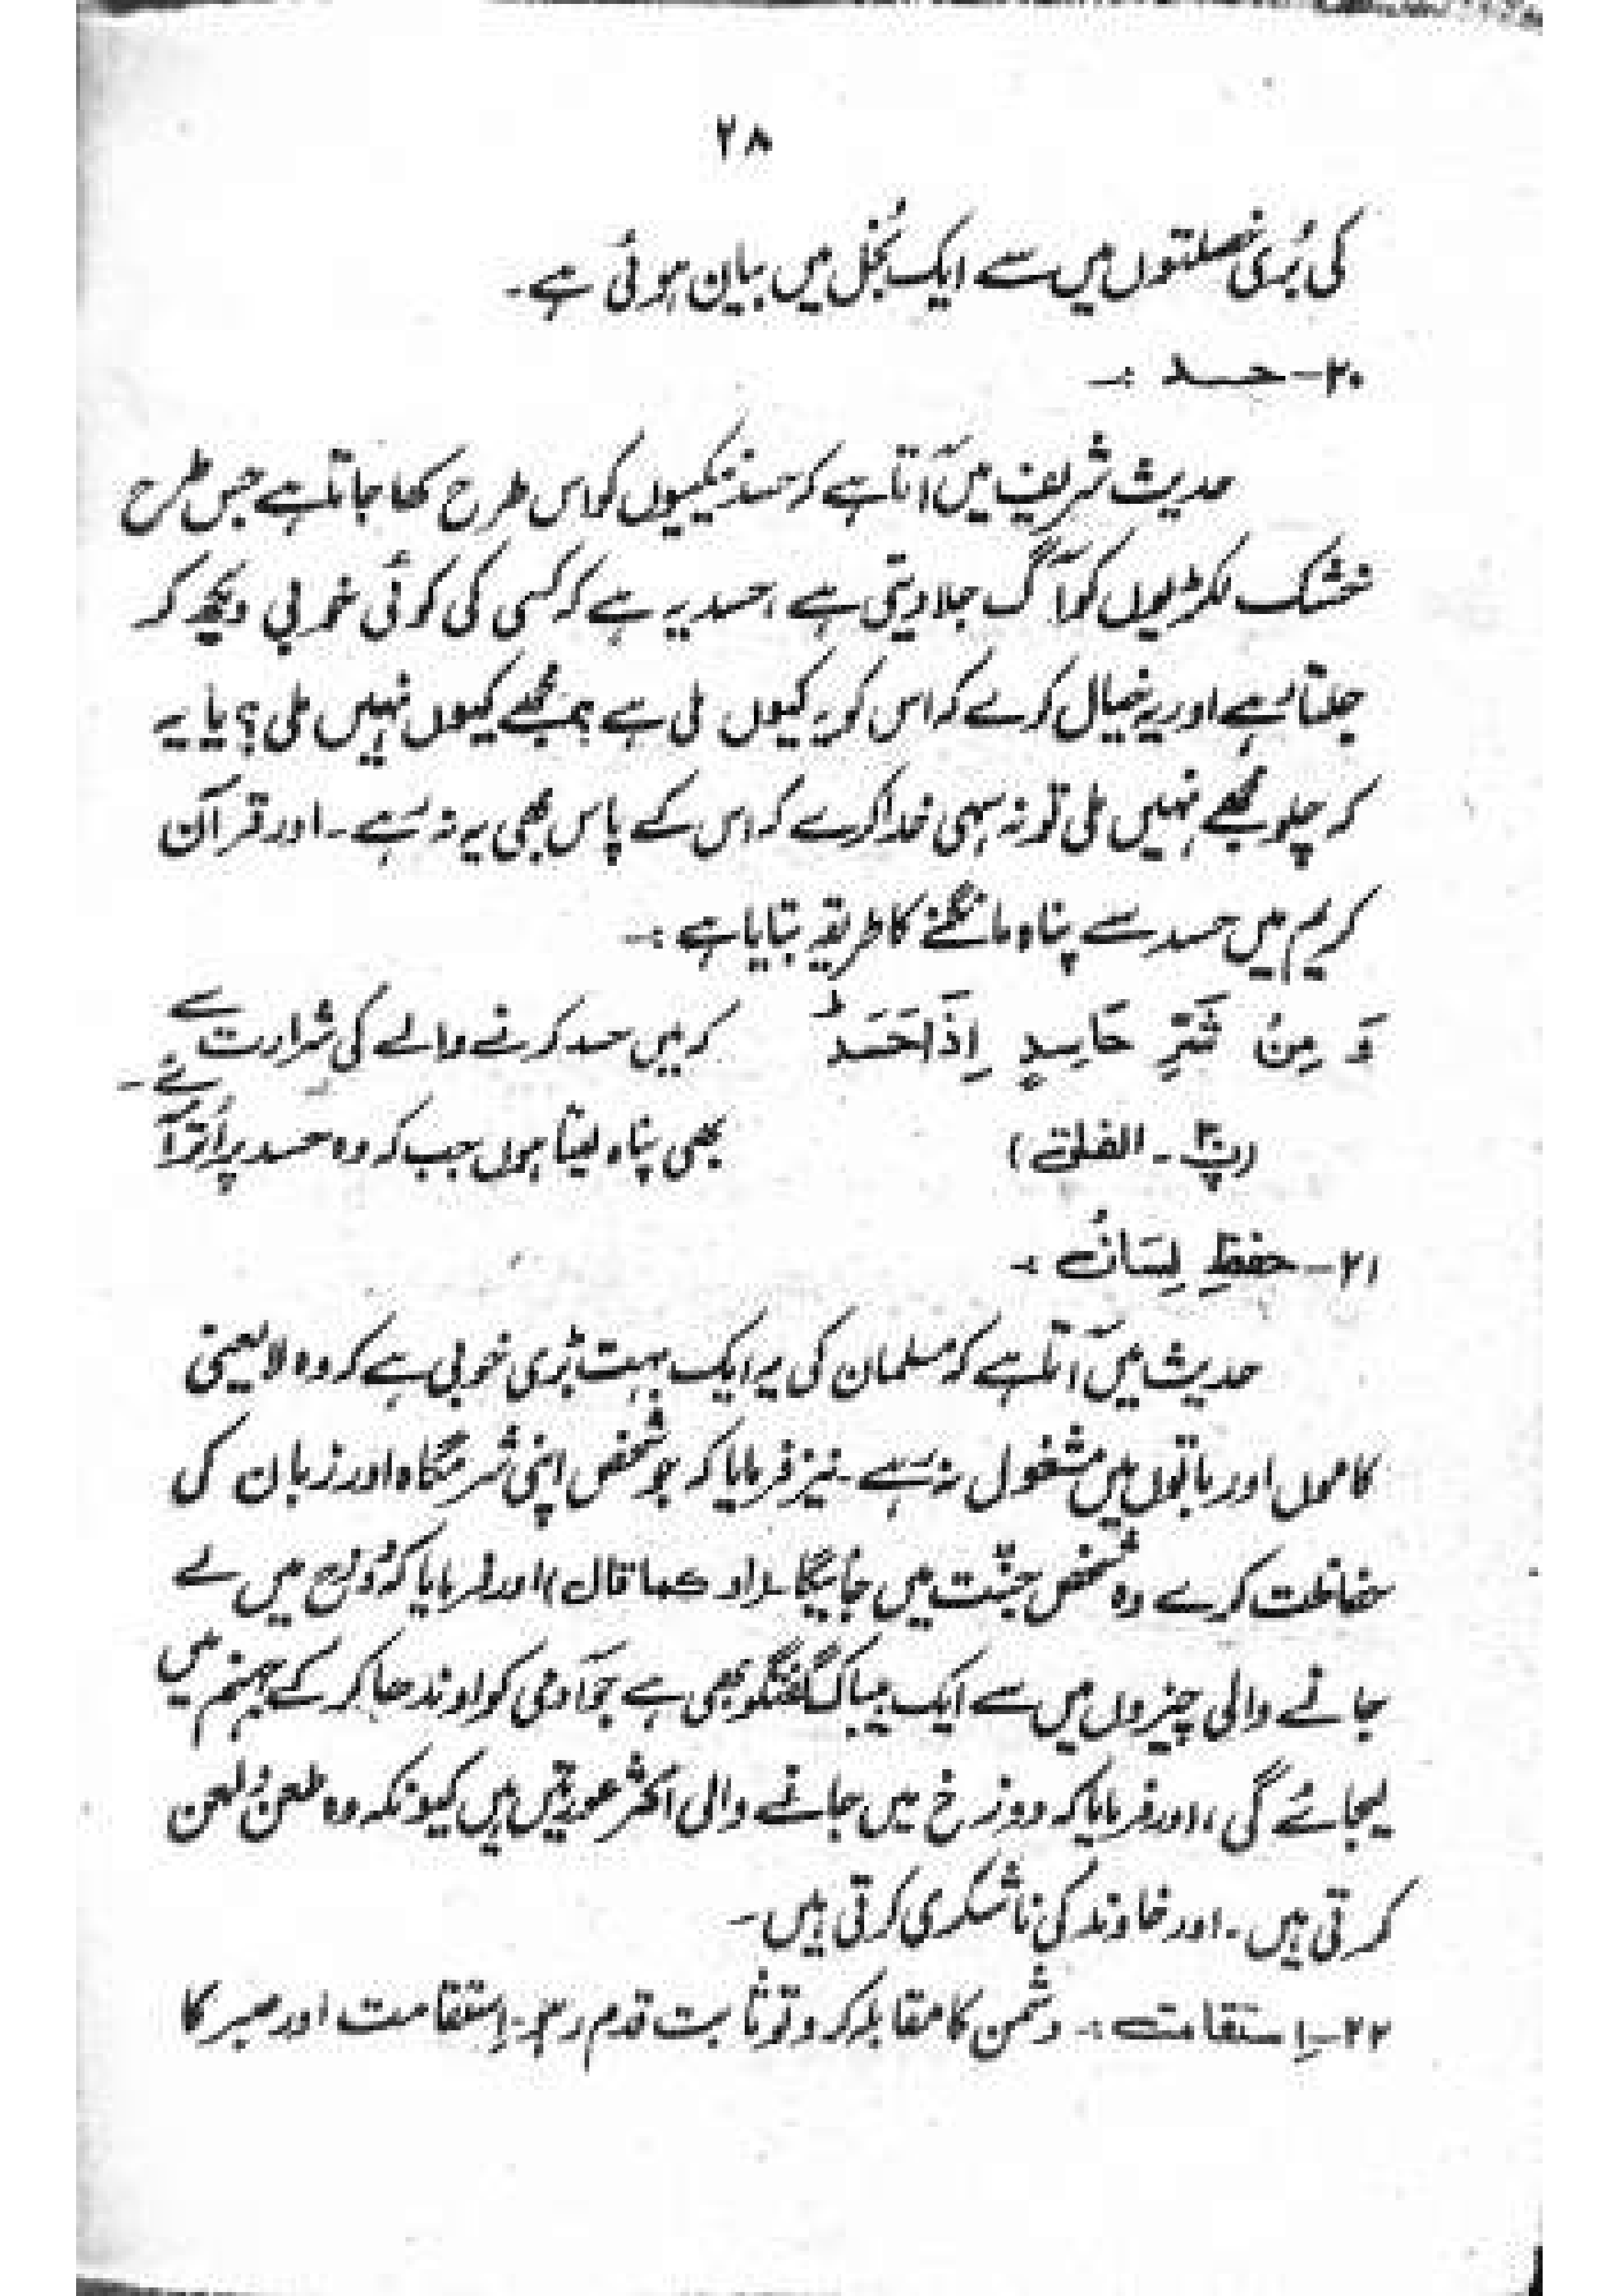 ۲۸
کی بُری خصلتوں میں سے ایک بُخل میں بیان ہوئی ہے۔
۲۰- حسد :۔
حدیث شریف میں آتا ہے کہ حسد نیکیوں کو اس طرح کھا جاتا ہے جس طرح
خشک لکڑیوں کو آگ جلا دیتی ہے، حسد یہ ہے کہ کسی کی کوئی خوبی دیکھ کر
جلتا رہے اور یہ خیال کرے کہ اس کو یہ کیوں ملی ہے مجھے کیوں نہیں ملی؟ یا یہ
کہ چلو مجھے نہیں ملی تو نہ سہی خدا کرے کہ اس کے پاس بھی یہ نہ رہے۔ اور قرآن
کریم میں حسد سے پناہ مانگنے کا طریقہ بتایا ہے :۔
وَ مِنْ شَرِّ حَاسِدٍ اِذَا حَسَدَ ؕ کہ میں حسد کرنے والے کی شرارت سے
(پ۳۰ - الفلق) بھی پناہ لیتا ہوں جب کہ وہ حسد پر اُتر آئے۔
۲۱- حفظِ لِسَانْ :۔
حدیث میں آتا ہے کہ مسلمان کی یہ ایک بہت بڑی خوبی ہے کہ وہ لایعنی
کاموں اور باتوں میں مشغول نہ رہے۔ نیز فرمایا کہ جو شخص اپنی شرمگاہ اور زبان کی
حفاظت کرے وہ شخص جنّت میں جائیگا۔ (او کما قال) اور فرمایا کہ دوزخ میں لے
جانے والی چیزوں میں سے ایک بیباک گفتگو بھی ہے جو آدمی کو اوندھا کر کے جہنم میں
لیجائے گی، اور فرمایا کہ دوزخ میں جانے والی اکثر عورتیں ہیں کیونکہ وہ طعن و لعن
کرتی ہیں۔ اور خاوند کی ناشکری کرتی ہیں۔
۲۲- اِستقامت :۔ دشمن کا مقابلہ کرو تو ثابت قدم رہو۔ اِستقامت اور صبر کا